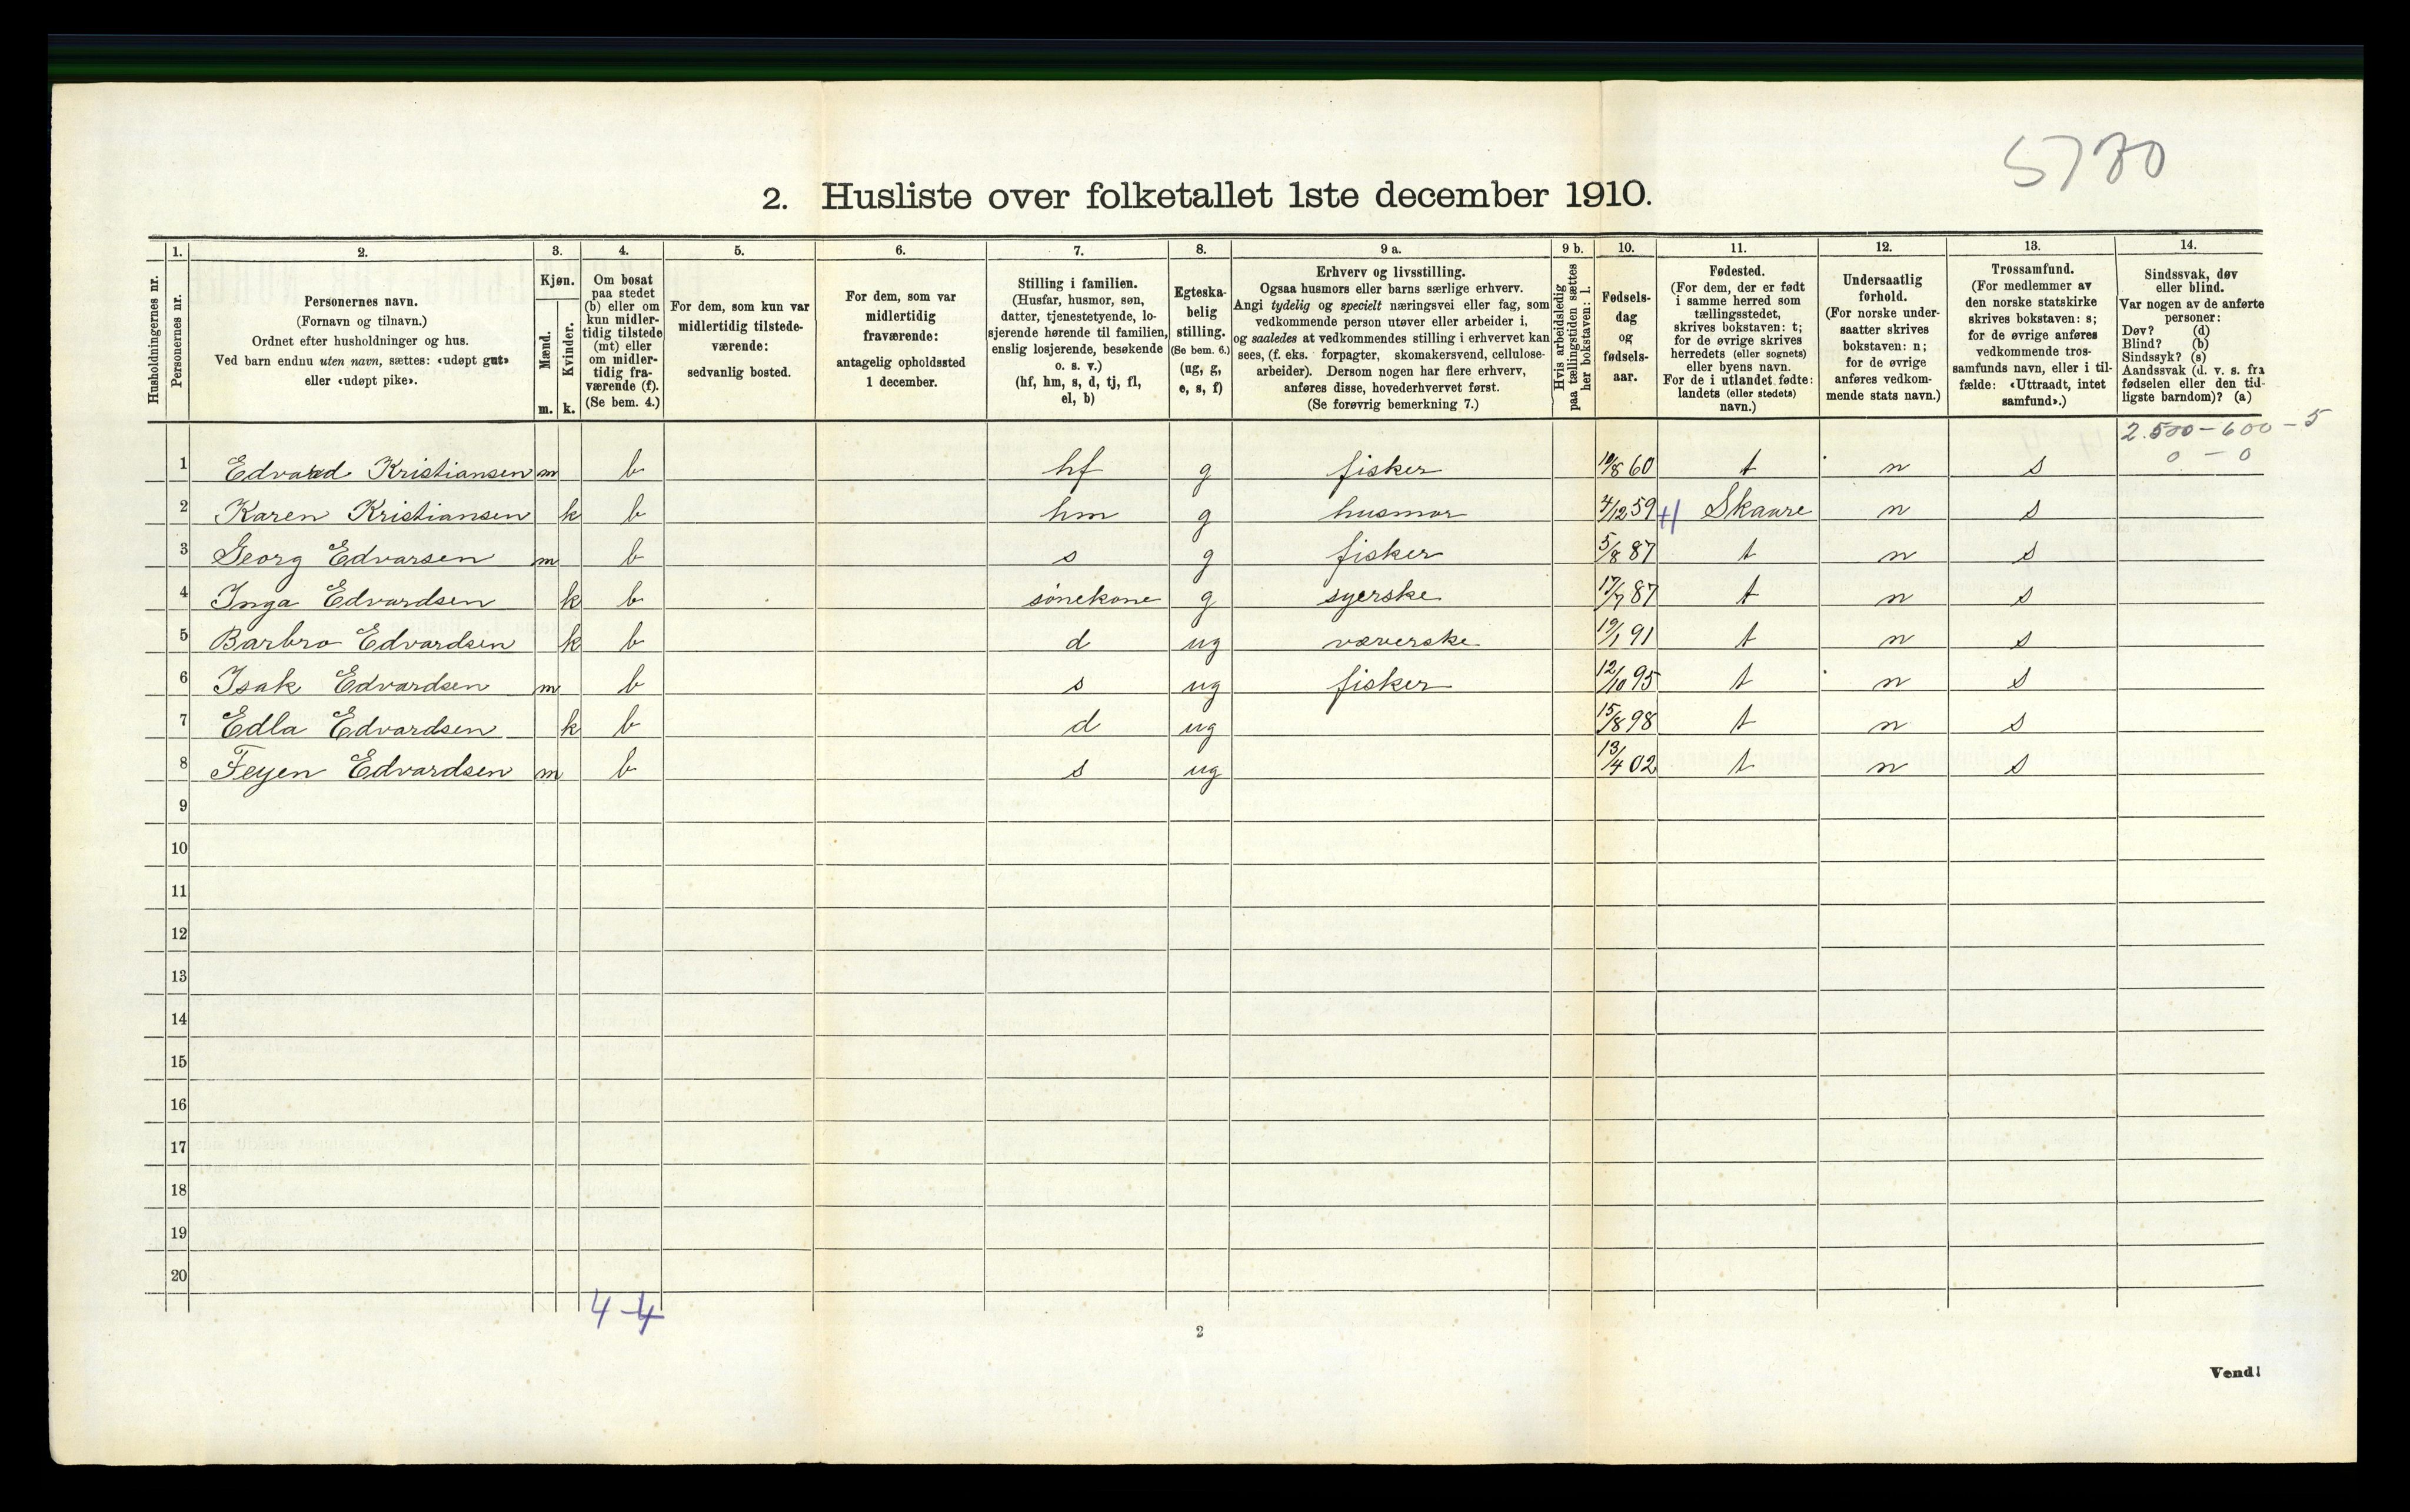 5780
2. Husliste over folketallet 1ste december 1910.
Husholdningernes nr.
1.
Personernes nr.
2.
Personernes navn.
(Fornavn og tilnavn.)
Ordnet efter husholdninger og hus.
Ved barn endnu uten navn, sættes: «udøpt gut»
eller «udøpt pike».
3.
Kjøn.
Mænd.
m.
Kvinder.
k.
4.
Om bosat
paa stedet
(b) eller om
kun midler-
tidig tilstede
(mt) eller
om midler-
tidig fra-
værende (f).
(Se bem. 4.)
5.
For dem, som kun var
midlertidig tilstede-
værende:
sedvanlig bosted.
6.
For dem, som var
midlertidig
fraværende:
antagelig opholdssted
1 december.
7.
Stilling i familien.
(Husfar, husmor, søn,
datter, tjenestetyende, lo-
sjerende hørende til familien,
enslig losjerende, besøkende
o. s. v.)
(hf, hm, s, d, tj, fl,
el, b)
8.
Egteska-
belig
stilling.
(Se bem. 6.)
(ug, g,
e, s, f)
9 a.
Erhverv og livsstilling.
Ogsaa husmors eller barns særlige erhverv.
Angi tydelig og specielt næringsvei eller fag, som
vedkommende person utøver eller arbeider i,
og saaledes at vedkommendes stilling i erhvervet kan
sees, (f. eks. forpagter, skomakersvend, cellulose-
arbeider). Dersom nogen har flere erhverv,
anføres disse, hovederhvervet først.
(Se forøvrig bemerkning 7.)
9 b.
Hvis arbeidsledig
paa tællingstiden sættes
her bokstaven: l.
10.
Fødsels-
dag
og
fødsels-
aar.
11.
Fødested.
(For dem, der er født
i samme herred som
tællingsstedet,
skrives bokstaven: t;
for de øvrige skrives
herredets (eller sognets)
eller byens navn.
For de i utlandet fødte:
landets (eller stedets)
navn.)
12.
Undersaatlig
forhold.
(For norske under-
saatter skrives
bokstaven: n;
for de øvrige
anføres vedkom-
mende stats navn.)
13.
Trossamfund.
(For medlemmer av
den norske statskirke
skrives bokstaven: s;
for de øvrige anføres
vedkommende tros-
samfunds navn, eller i til-
fælde: «Uttraadt, intet
samfund».)
14.
Sindssvak, døv
eller blind.
Var nogen av de anførte
personer:
Døv? (d)
Blind? (b)
Sindssyk? (s)
Aandssvak (d. v. s. fra
fødselen eller den tid-
ligste barndom)? (a)
2.500 - 600 - 5
0 - 0
1 Edvard Kristiansen m b hf g fisker 10/8 60 t n s
2 Karen Kristiansen k b hm g husmor 4/12 59 H Skaare n s
3 Georg Edvarsen m b s g fisker 5/8 87 t n s
4 Inga Edvardsen k b sönekone g syerske 17/7 87 t n s
5 Barbro Edvardsen k b d ug væverske 19/1 91 t n s
6 Isak Edvardsen m b s ug fisker 12/10 95 t n s
7 Edla Edvardsen k b d ug 15/8 98 t n s
8 Feyen Edvardsen m b s ug 13/4 02 t n s
9
10
11
12
13
14
15
16
17
18
19
20
4-4
2
Vend!